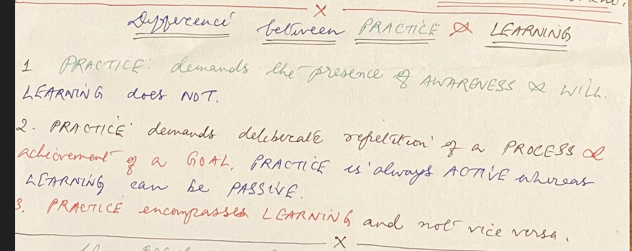 Difference between PRACTICE & LEARNING
1 PRACTICE: demands the presence of AWARENESS & WILL.
LEARNING does NOT.
2. PRACTICE demands deliberate repetition of a PROCESS &
achievement of a GOAL. PRACTICE is always ACTIVE whereas
LEARNING can be PASSIVE.
3. PRACTICE encompasses LEARNING and not vice versa.